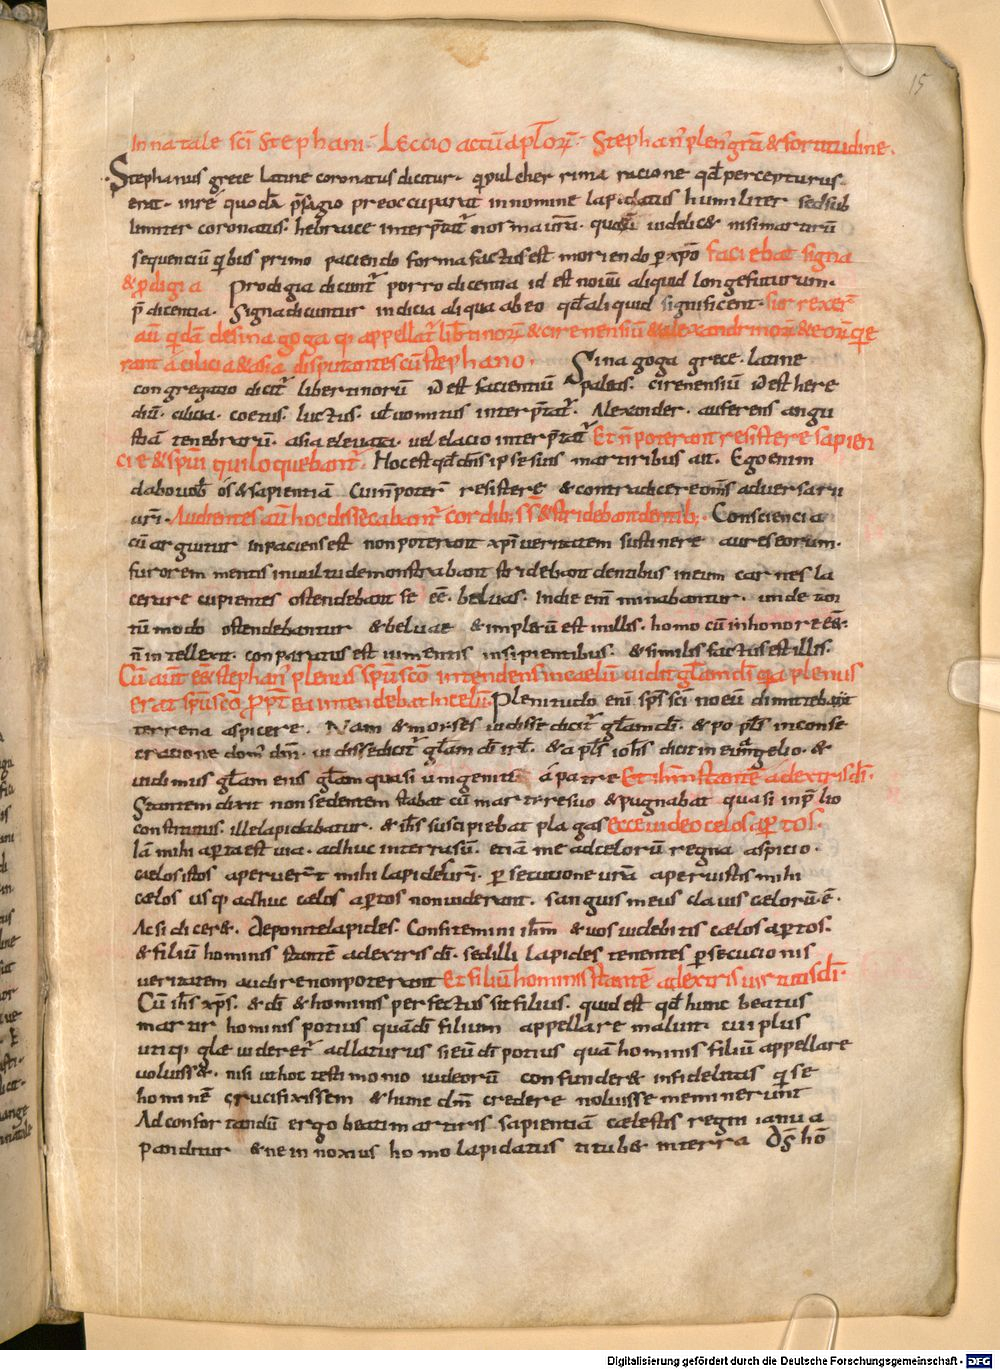 15
In natale sci Stephani. Leccio actuū aptorū. Stephanꝰ plenꝰ grā & fortitudine.
Stephanus grece latine coronatus dicitur. q pulcher rima racione qd percepturus
erat. in re quodā psagio preoccuparat in nomine lapidatus humiliter sed sub
limiter coronatus. hebraice interptat nos ma urm. quasi videlic& nisi martirū
sequenciū qibus primo paciendo forma factus est moriendo p xpō faciebat signa
& pdigia Prodigia dicunt porro dicentia id est novū aliquid longe futurum.
p̄dicentia. Signa dicuntur indicia aliqua ab eo qd aliquid significent. surrexer
aū qdā de sinagoga qi appellat libtinorū & cirenensiū & alexandrinorū & eorū qi e
rant a cilicia & asia disputantes cū stephano. Sinagoga grece. latine
congregatio dicit libertinorū id est facientiū cirenensiū id est here
diū. cilicia. coetus. luctus. ul vomitus interptat. Alexander. auferens angu
stiā tenebrarū. asia elevata. vel elacio interptat Et n̄ poterant resistere sapien
cie & spui qui loquebant. Hoc est qd dns ipse suis martiribus ait. Ego enim
dabo vob os & sapientiā Cui n̄ poter resistere & contradicere oms adversarii
vri. Audientes aū hoc dissecabant cordib; ss & stridebant dentib;. Consciencia
cū arguitur inpaciens est non poterant xpi veritatem sustinere aures eorum.
furorem mentis in vultu demonstrabant stridebant dentibus in eum carnes la
cerare cupientes ostendebant se eē. beluas. Indie em minabantur. unde tan
tū modo ostendebantur & beluae & impletū est in illis. homo cū in honore eēt.
n̄ intellexit. conparatus est iumentis insipientibus. & similis factus est illis.
Cū aut eēt stephanꝰ plenus spu scō intendens in caelū vidit glam di qia plenus
erat spu scō ppt ea intendebat in celū. Plenitudo eni sps sci n̄ eū dimittebat
terrena aspicere. Nam & moises vidisse dicit glam di. & po pls in conse
cratione dom dni. vidisse dicit glam di isrl. & a pls iohs dicit in evangelio. &
vidimus glam eius glam quasi unigeniti a patre Et ihm stantē a dextris di.
Stantem dixit non sedentem stabat cū martire suo & pugnabat quasi in plio
constitutus. ille lapidabatur. & ihs suscipiebat plagas ecce video celos aptos.
Iā mihi apta est via. adhuc in terra sū. etiā me ad celorū regna aspicio.
caelos istos aperuert mihi lapides vri. psecutione vra aperuistis mihi
caelos usq; adhuc caelos aptos non viderant. sanguis meus clavis caelorū ē.
Ac si dicer&. Deponite lapides. Confitemini ihm & vos videbitis caelos aptos.
& filiū hominis stantē a dextris di. sed illi lapides tenentes psecucionis
veritatem audire non poterant Et filiū hominis stantē a dextris virtutis di.
Cū ihs xps. & di & hominis perfectus sit filius. quid est qd hunc beatus
martir hominis potius quā di filium appellare maluit. cui plus
utiq; glae videret adlaturus si eū di potius quā hominis filiū appellare
voluiss&. nisi ut hoc testimonio iudeorū confunder& infidelitas qi se
hominē crucifixissem & hunc dm credere noluisse meminerunt
Ad confortandū ergo beati martiris sapientiā caelestis regni ianua
panditur & ne innoxius homo lapidatus titub& in terra Ds hō
Digitalisierung gefördert durch die Deutsche Forschungsgemeinschaft - DFG